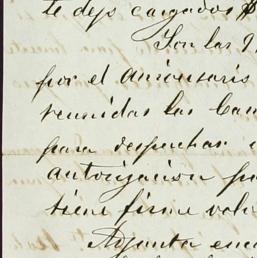 te dejo cargados $
Son las 9
por el aniversario
reunidas las Cam
para despachar
autorización pa
tiene firme volu
Adjunta enc